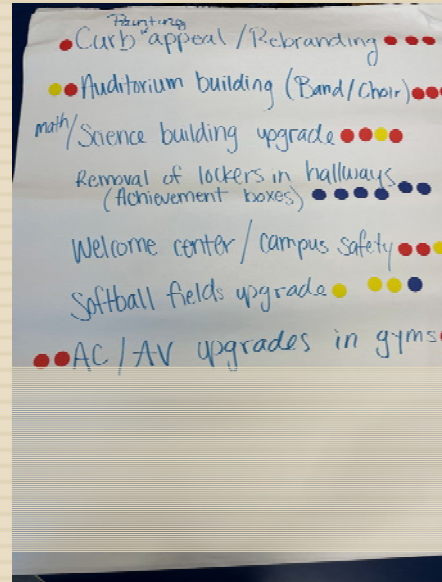 Painting
Curb appeal / Rebranding
Auditorium building (Band/Choir)
math/Science building upgrade
Removal of lockers in hallways
(Achievement boxes)
Welcome center / campus safety
Softball fields upgrade
AC / AV upgrades in gyms